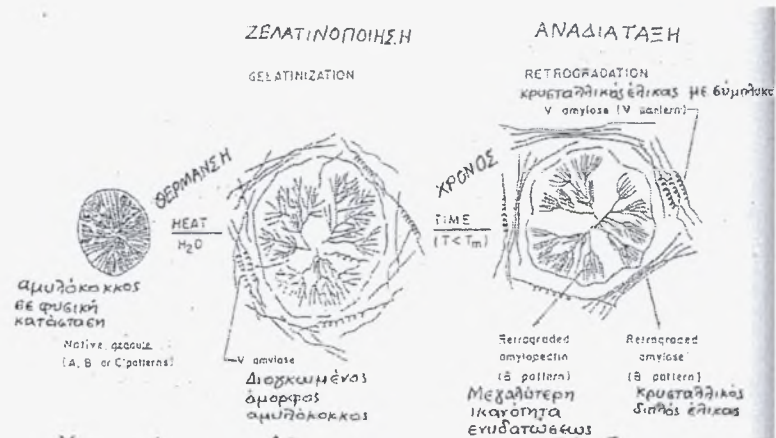 ΖΕΛΑΤΙΝΟΠΟΙΗΣΗ
ΑΝΑΔΙΑΤΑΞΗ
GELATINIZATION
RETROGRADATION
κρυσταλλικός έλικας με σύμπλοκο
V amylose (V pattern)
ΘΕΡΜΑΝΣΗ
ΧΡΟΝΟΣ
HEAT
H₂O
TIME
(T < Tm)
αμυλόκοκκος
σε φυσική
κατάσταση
Native granule
(A, B or C patterns)
V amylose
Διογκωμένος
άμορφος
αμυλόκοκκος
Retrograded
amylopectin
(B pattern)
Μεγαλύτερη
ικανότητα
ενυδατώσεως
Retrograded
amylose
(B pattern)
Κρυσταλλικός
διπλός έλικας